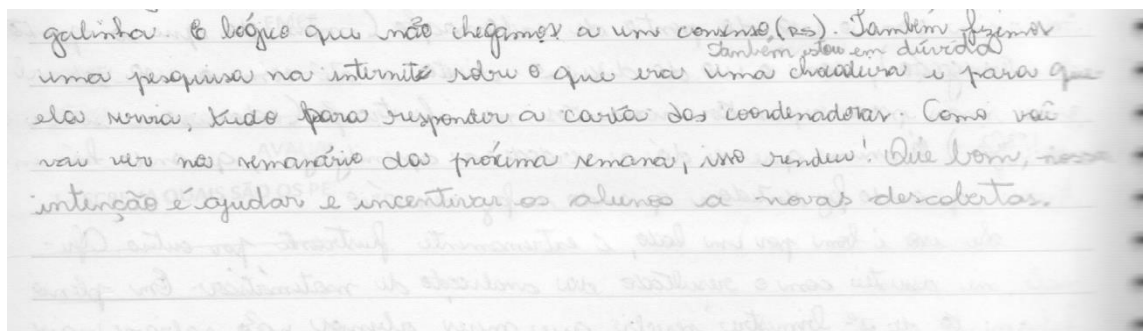 galinha. É lógico que não chegamos a um consenso (RS). Também fizemos
Também estou em dúvida
uma pesquisa na internite sobre o que era uma chocadeira e para que
ela servia, tudo para responder a carta das coordenadoras. Como você
vai ver no semanário da próxima semana, isso rendeu! Que bom, nossa
intenção é ajudar e incentivar os alunos a novas descobertas.